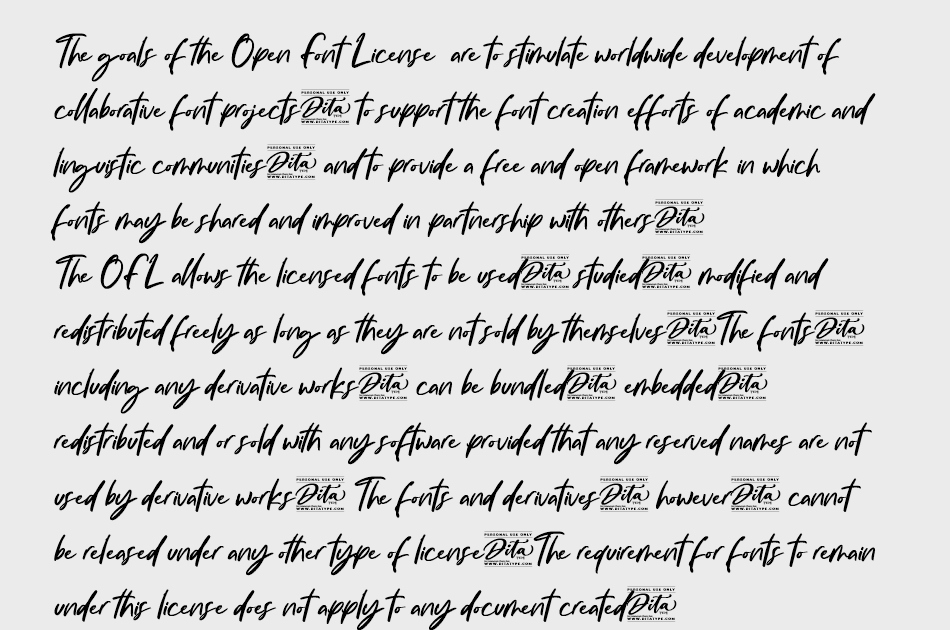 The goals of the Open Font License are to stimulate worldwide development of
collaborative font projects PERSONAL USE ONLY Dita TYPE WWW.DITATYPE.COM to support the font creation efforts of academic and
linguistic communities PERSONAL USE ONLY Dita TYPE WWW.DITATYPE.COM and to provide a free and open framework in which
fonts may be shared and improved in partnership with others PERSONAL USE ONLY Dita TYPE WWW.DITATYPE.COM
The OFL allows the licensed fonts to be used PERSONAL USE ONLY Dita TYPE WWW.DITATYPE.COM studied PERSONAL USE ONLY Dita TYPE WWW.DITATYPE.COM modified and
redistributed freely as long as they are not sold by themselves PERSONAL USE ONLY Dita TYPE WWW.DITATYPE.COM The fonts PERSONAL USE ONLY Dita TYPE WWW.DITATYPE.COM
including any derivative works PERSONAL USE ONLY Dita TYPE WWW.DITATYPE.COM can be bundled PERSONAL USE ONLY Dita TYPE WWW.DITATYPE.COM embedded PERSONAL USE ONLY Dita TYPE WWW.DITATYPE.COM
redistributed and or sold with any software provided that any reserved names are not
used by derivative works PERSONAL USE ONLY Dita TYPE WWW.DITATYPE.COM The fonts and derivatives PERSONAL USE ONLY Dita TYPE WWW.DITATYPE.COM however PERSONAL USE ONLY Dita TYPE WWW.DITATYPE.COM cannot
be released under any other type of license PERSONAL USE ONLY Dita TYPE WWW.DITATYPE.COM The requirement for fonts to remain
under this license does not apply to any document created PERSONAL USE ONLY Dita TYPE WWW.DITATYPE.COM